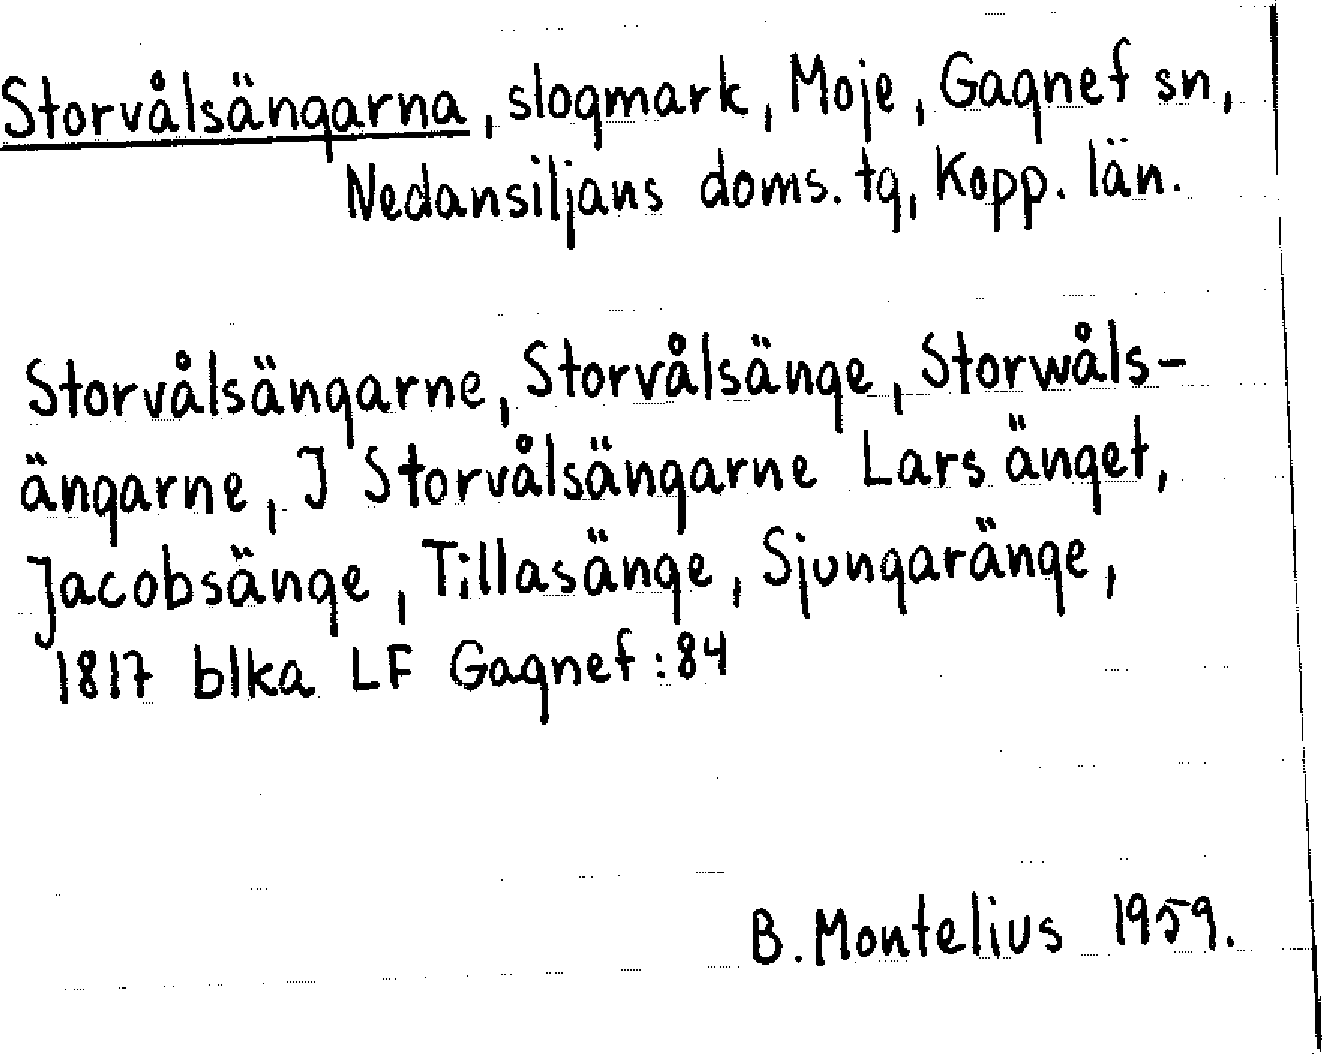 Storvålsängarna, slogmark, Moje, Gagnef sn,
Nedansiljans doms. tg, Kopp. län.
Storvålsängarne, Storvålsänge, Storwåls-
ängarne, J Storvålsängarne Lars änget,
Jacobsänge, Tillasänge, Sjungaränge,
1817 blka LF Gagnef:84
B. Montelius 1959.